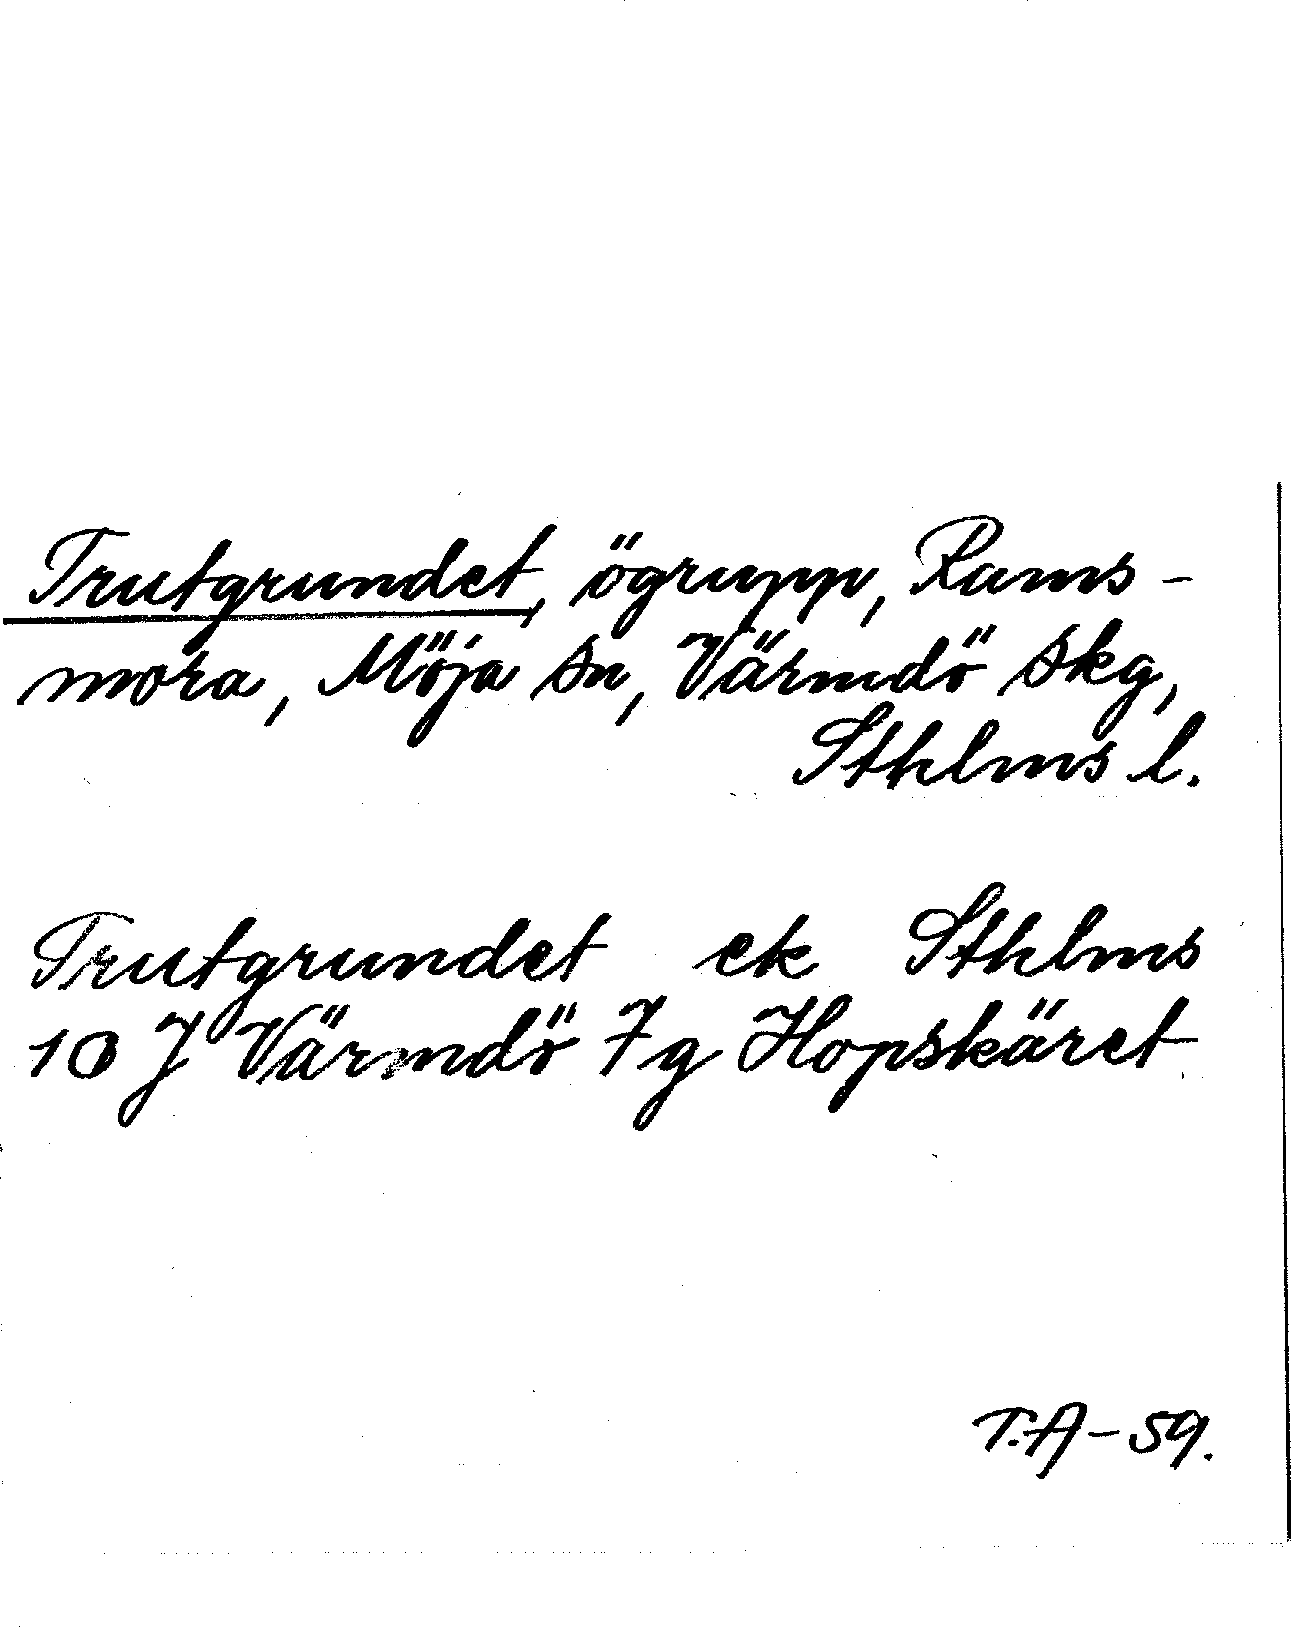 Trutgrundet, ögrupp, Rams-
mora, Möja sn, Värmdö skg,
Sthlms l.
Trutgrundet ek Sthlms
10 J Värmdö 7g Hopskäret
T.A-59.